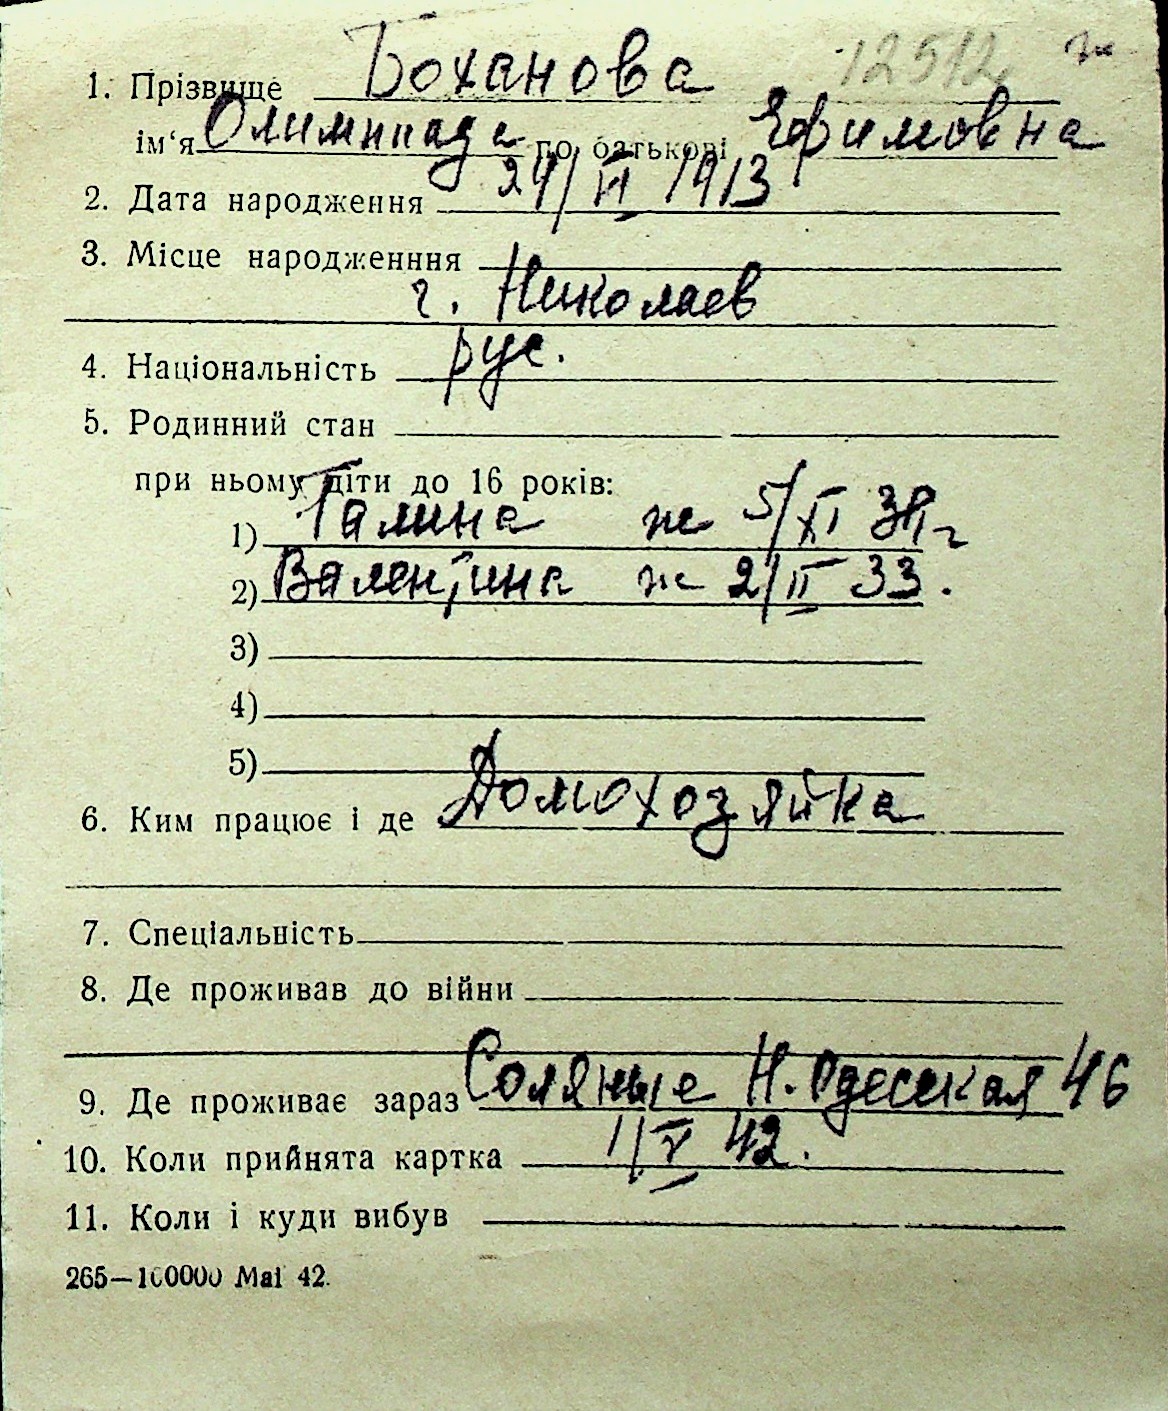 12512 ж
1. Прізвище Боханова
ім'я Олимпиада по батькові Ефимовна
2. Дата народження 24/VI 1913
3. Місце народженння
г. Николаев
4. Національність рус.
5. Родинний стан
при ньому діти до 16 років:
1) Галина ж 5/XI г
2) Валентина ж 2/II 33.
3)
4)
5)
6. Ким працює і де Домохозяйка
7. Спеціальність
8. Де проживав до війни
9. Де проживає зараз Соляные Н. Одесская 46
10. Коли прийнята картка 1/V 42.
11. Коли і куди вибув
265—100000 Mai 42.